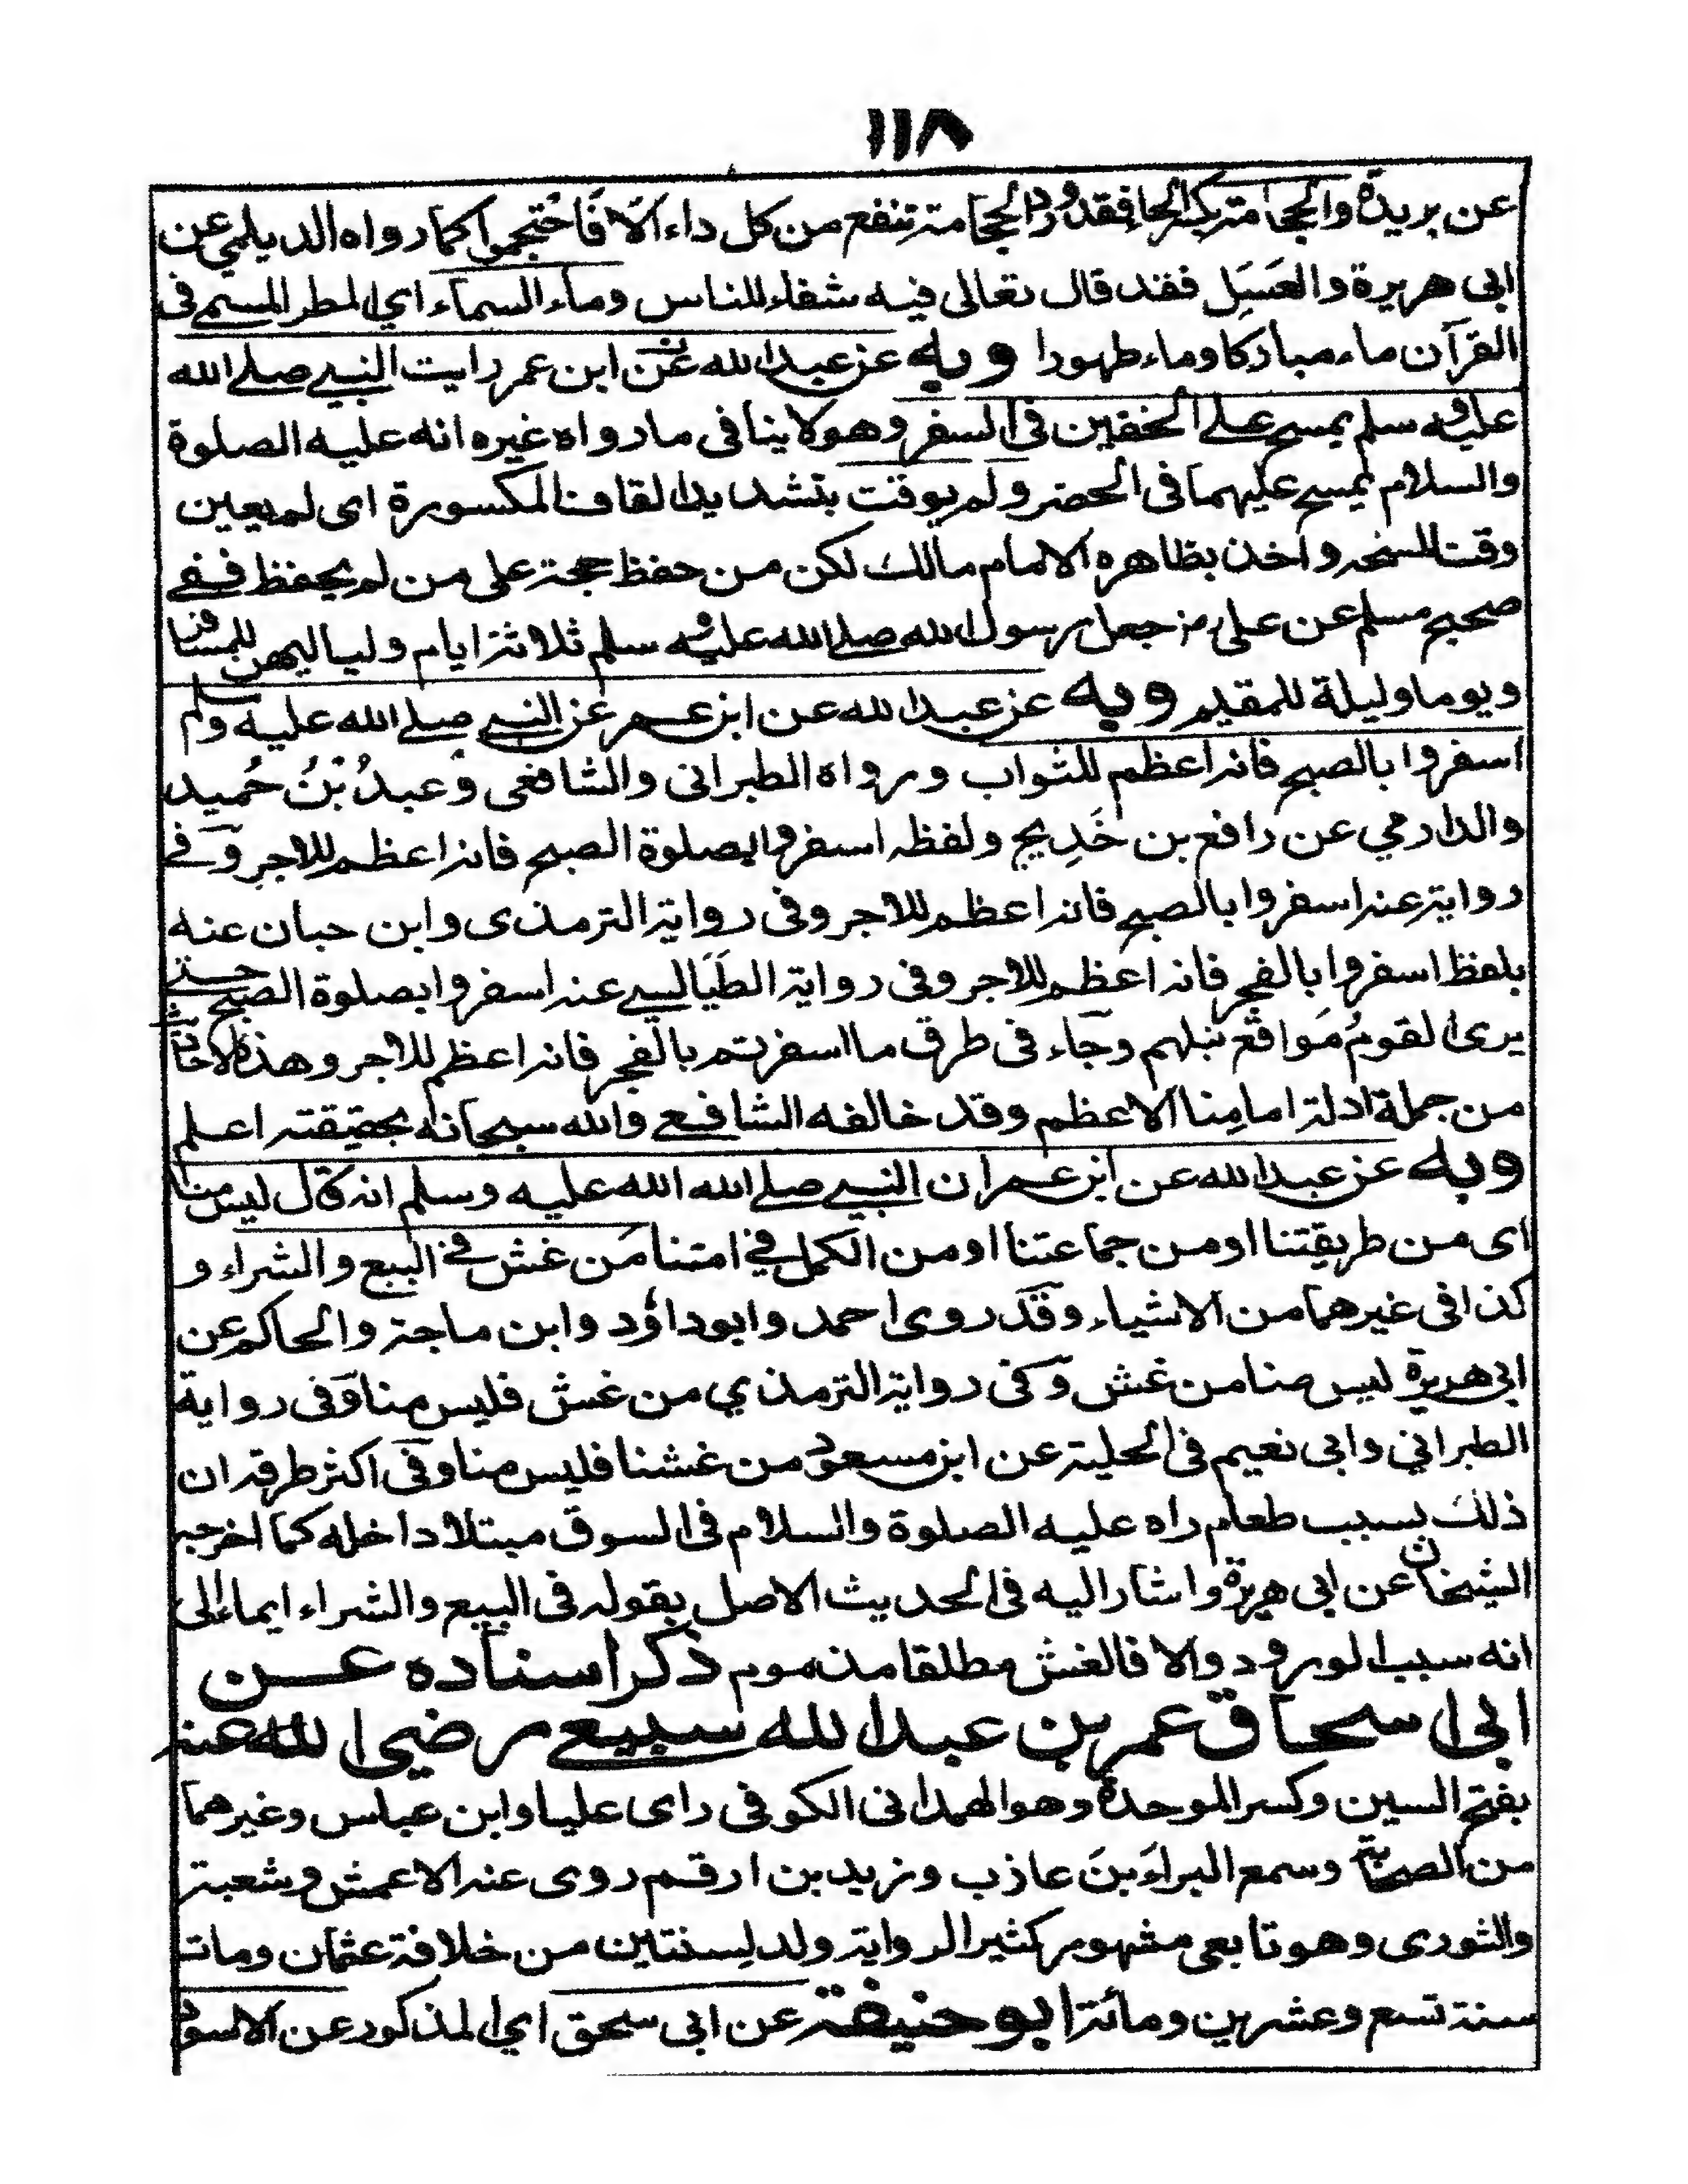 ١١٨
عن بريدة والحجامة بكسر الحا فقد ورد الحجامة تنفع من كل داء الا فَاحْتجموا كما رواه الديلمي عن
ابى هريرة والعَسَلِ فقد قال تعالى فيه شفاء للناس وماء السماء اي المطر المسمى فى
القرآن ماء مباركا وماء طهورا وبه عن عبد الله عن ابن عمر رايت النبي صلى الله
عليه وسلم يمسح على الخفين فى السفر وهو لا ينافى ما رواه غيره انه عليه الصلوة
والسلام يمسح عليهما فى الحضر ولم يوقت بتشديد القاف المكسورة اى لم يعين
وقت المسح واخذ بظاهره الامام مالك لكن من حفظ حجة على من لم يحفظ ففي
صحيح مسلم عن على رض جعل رسول الله صلى الله عليه وسلم ثلاثة ايام ولياليهن للمسافر
ويوما وليلة للمقيم وبه عن عبد الله عن ابن عمر عن النبي صلى الله عليه وسلم
اسفروا بالصبح فانه اعظم للثواب ورواه الطبرانى والشافعى وعبدُ بْنُ حُميد
والدارمي عن رافع بن خَدِيج ولفظه اسفروا بصلوة الصبح فانه اعظم للاجر وفى
رواية عنه اسفروا بالصبح فانه اعظم للاجر وفى رواية الترمذى وابن حبان عنه
بلفظ اسفروا بالفجر فانه اعظم للاجر وفى رواية الطَيَالسي عنه اسفروا بصلوة الصبح حتى
يرى القومُ مَواقع نبلهم وجاء فى طرق ما اسفرتم بالفجر فانه اعظم للاجر وهذه الاحاديث
من جملة ادلة امامنا الاعظم وقد خالفه الشافعي والله سبحانه بحقيقته اعلم
وبه عن عبد الله عن ابن عمر ان النبي صلى الله الله عليه وسلم انه قال ليس منا
اى من طريقتنا او من جماعتنا او من الكمل في امتنا مَن غش في البيع والشراء و
كذا فى غيرهما من الاشياء وقد روى احمد وابو داؤد وابن ماجة والحاكم عن
ابى هريرة ليس منا من غش وفى رواية الترمذي من غش فليس منا وفى رواية
الطبراني وابى نعيم فى الحلية عن ابن مسعود من غشنا فليس منا وفى اكثر طرقه ان
ذلك بسبب طعام راه عليه الصلوة والسلام فى السوق مبتلا داخله كما اخرجه
الشيخان عن ابى هريرة واشار اليه فى الحديث الاصل بقوله فى البيع والشراء ايماء الى
انه سبب الورود والا فالغش مطلقا مذموم ذكر اسناده عن
ابى اسحاق عمر بن عبد الله سبيعي رضي الله عنه
بفتح السين وكسر الموحدة وهو الهمدانى الكوفى راى عليا وابن عباس وغيرهما
من الصحابة وسمع البراءَ بنَ عاذب وزيد بن ارقم روى عنه الاعمش وشعبة
والثورى وهو تابعى مشهور كثير الرواية ولد لسنتين من خلافة عثمان ومات
سنة تسع وعشرين ومائة ابو حنيفة عن ابى اسحق اي المذكور عن الاسود